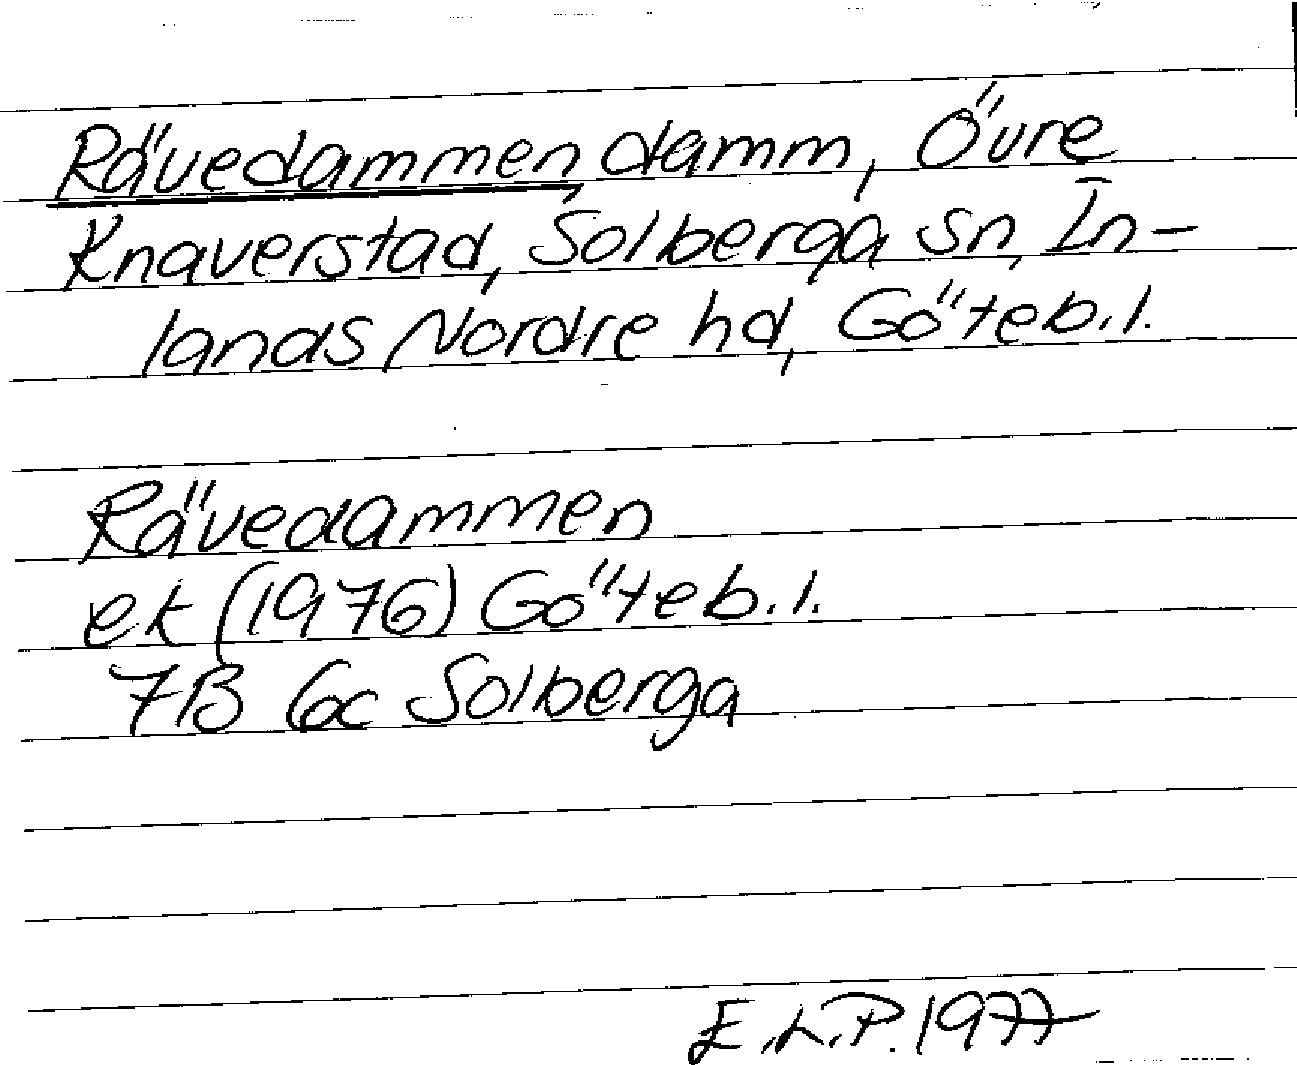 Rävedammen, damm, Övre
Knaverstad, Solberga sn, In-
lands Nordre hd, Göteb.l.
Rävedammen
ek (1976) Göteb.l.
7B 6c Solberga
E.L.P. 1977